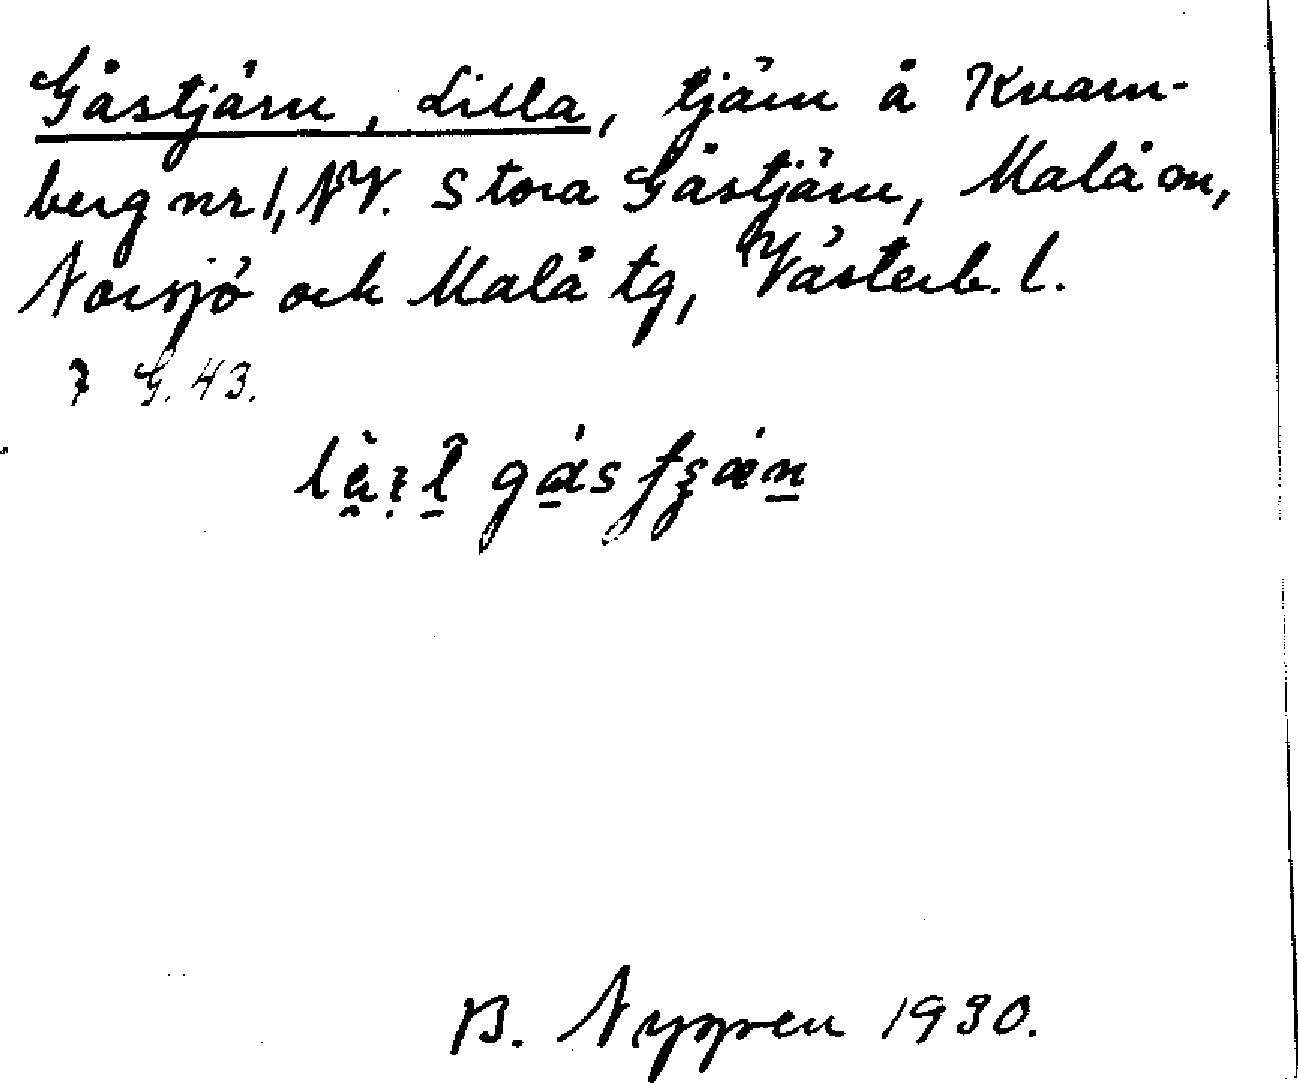 Gåstjärn, Lilla, tjärn å Kvarn-
berg nr 1, NV. Stora Gåstjärn, Malå sn,
Norsjö och Malå tg, Västerb. l.
G. 43.
B. Nygren 1930.